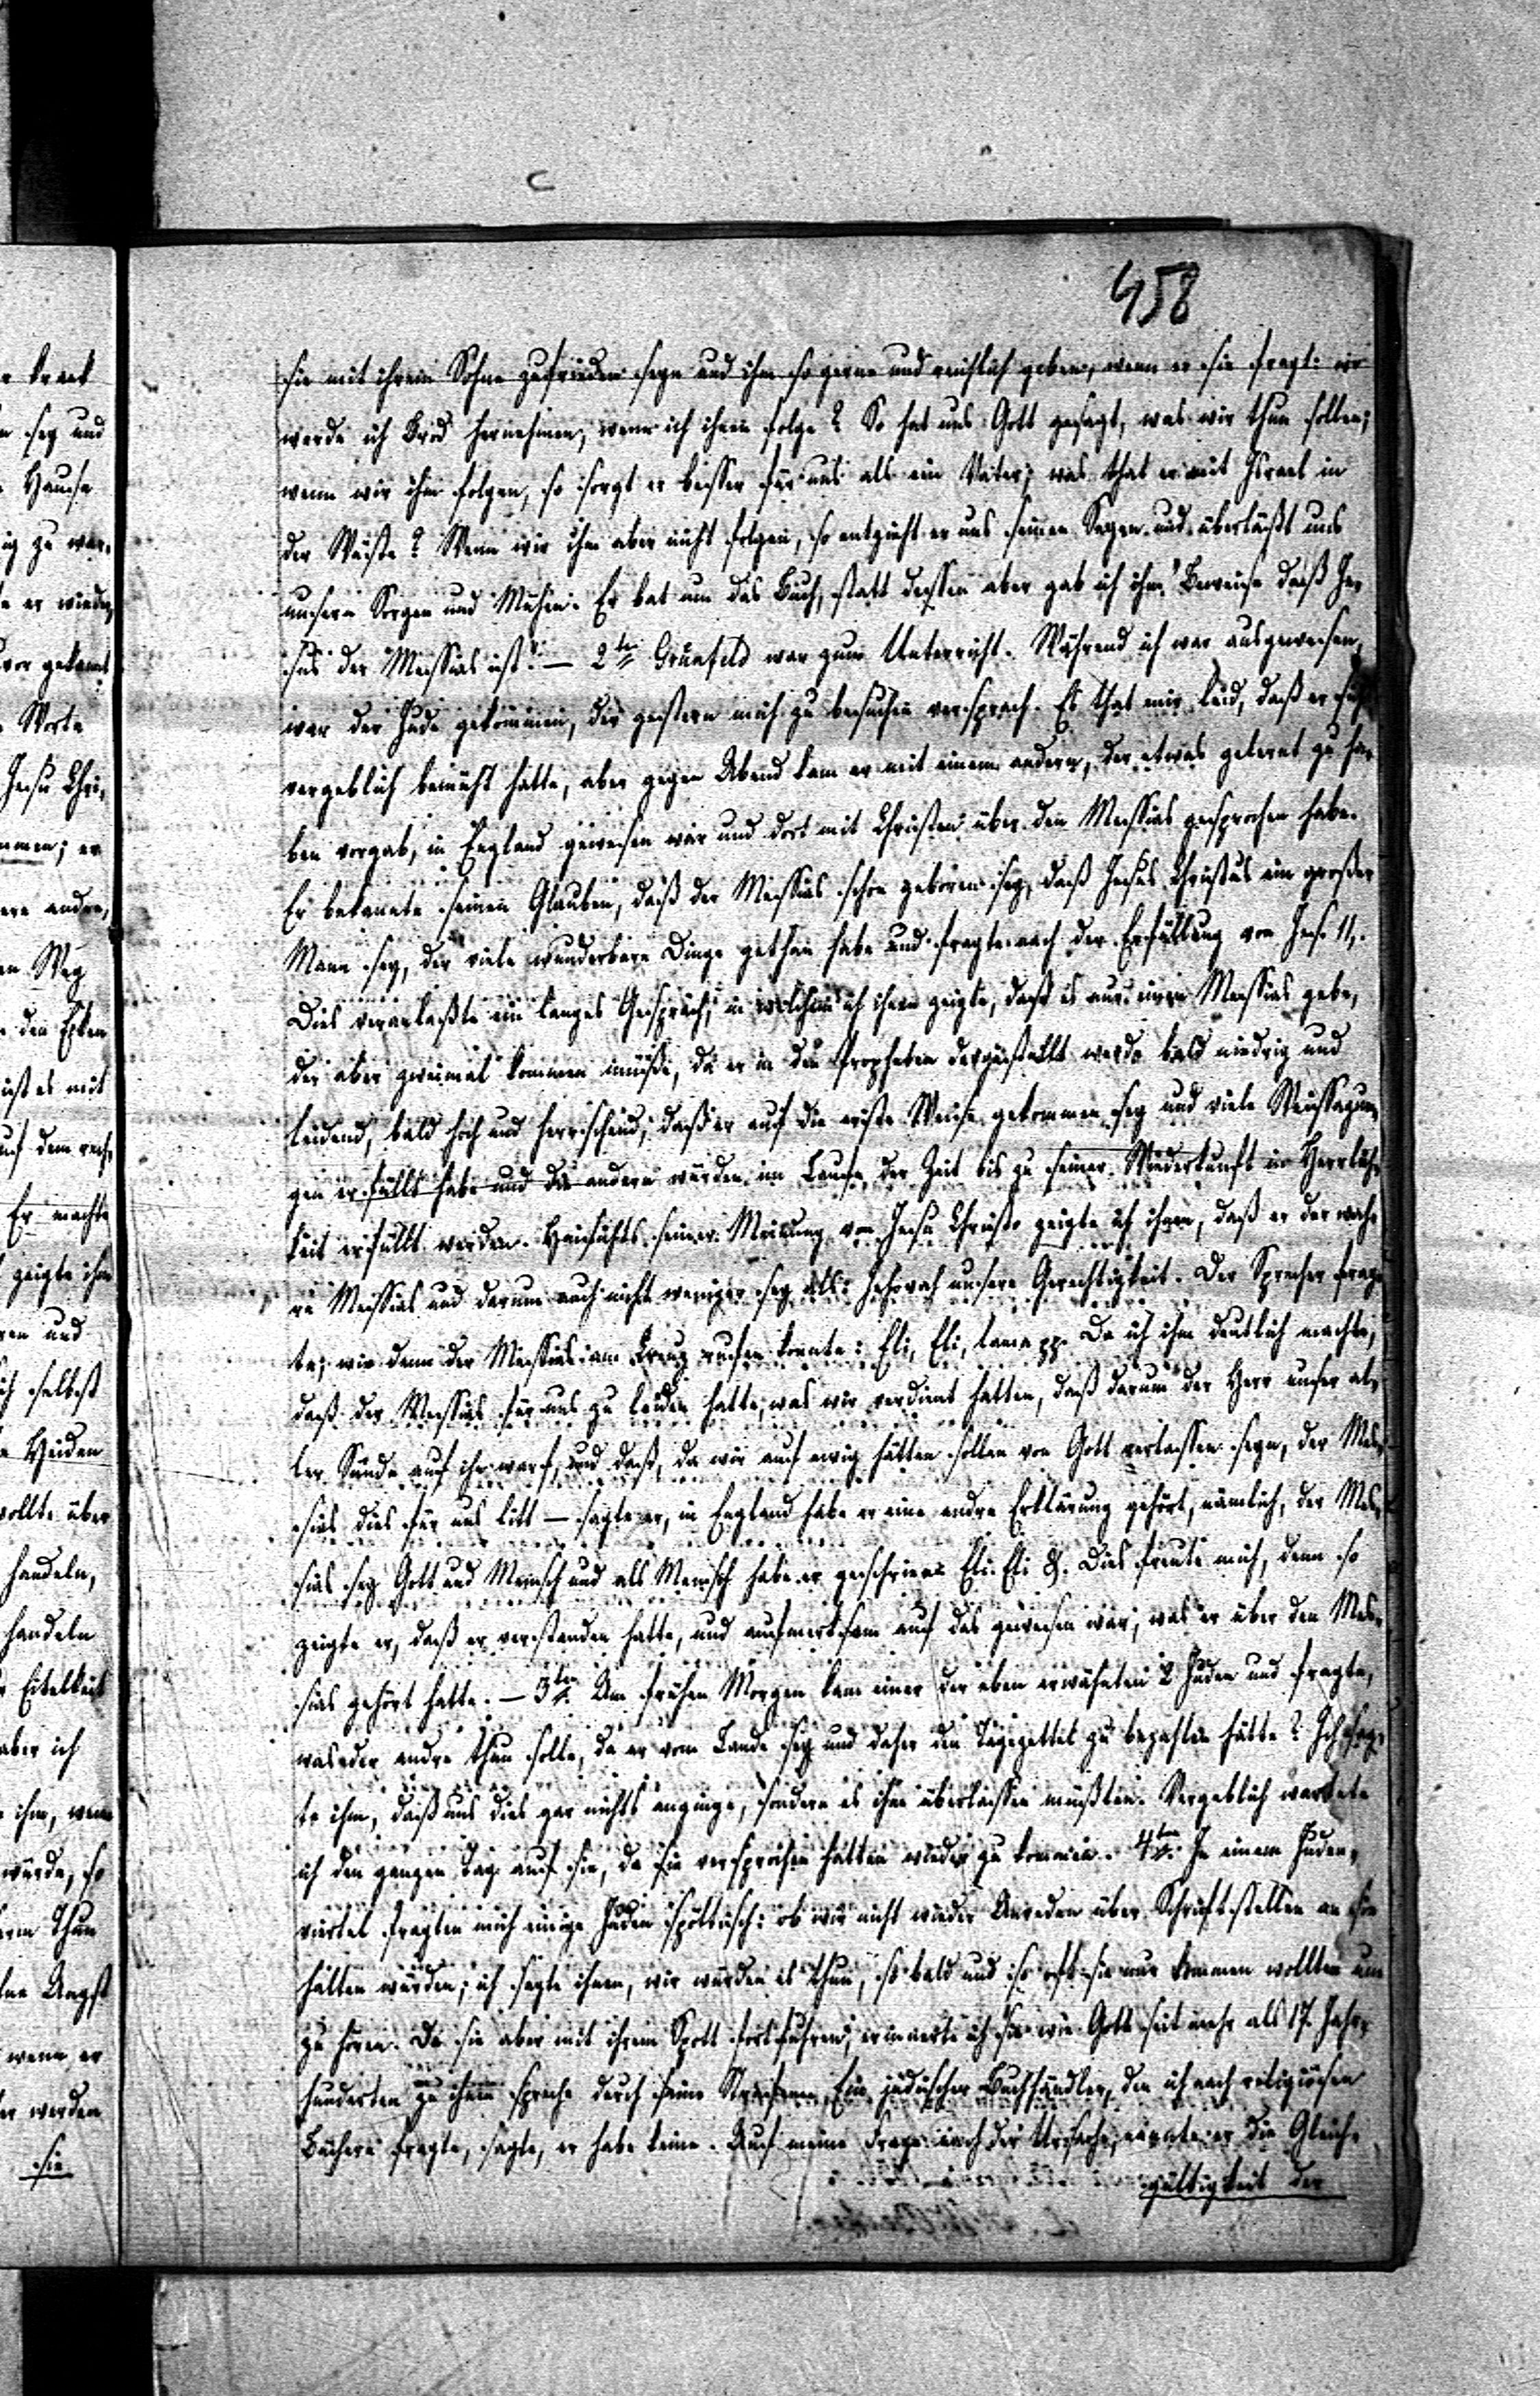 458
sie mit ihrem Sohne zufrieden seyn und ihm so gerne und reichlich geben, wenn er sie fragt: wo
werde ich Brod hernehmen, wenn ich ihnen folge? So hat uns Gott gesagt, was wir thun sollen;
wenn wir ihm folgen, so sorgt er besser für uns als ein Vater; was that er mit Israel in
der Wüste? Wenn wir ihm aber nicht folgen, so entzieht er uns seinen Segen und überläßt uns
unsern Sorgen und Mühen. Er bat um das Buch, statt dessen aber gab ich ihm "Beweise daß Je,
sus der Messias ist." — 2te Grünfeld war zum Unterricht. Während ich war ausgewesen,
war der Jude gekommen, der gestern mich zu besuchen versprach. Es that mir leid, daß er sich
vergeblich bemüht hatte, aber gegen Abend kam er mit einem andern, der etwas gelernt zu ha,
ben vorgab, in England gewesen war und dort mit Christen über den Messias gesprochen habe.
Er bekannte seinen Glauben, daß der Messias schon geboren sey, daß Jesus Christus ein großer
Mann sey, der viele wunderbare Dinge gethan habe und fragte nach der Erfüllung von Jes. 11,.
Dies veranlaßte ein langes Gespräch, in welchem ich ihnen zeigte, daß es nur einen Messias gebe,
der aber zweimal kommen müsse, da er in den Propheten dargestellt werde bald niedrig und
leidend, bald hoch und herrschend; daß er auf die erste Weise gekommen sey und viele Weissagun,
gen erfüllt habe und die andern würden im Laufe der Zeit bis zu seiner Wiederkunft in Herrlich,
keit erfüllt werden. Hinsichts seiner Meinung von Jesu Christo zeigte ich ihnen, daß er der wah,
re Messias und darum auch nicht weniger sey als: Jehovah unsere Gerechtigkeit. Der Sprecher frag,
te; wie denn der Messias am Kreuz rufen konnte: Eli, Eli, lama pp. Da ich ihm deutlich machte,
daß der Messias für uns zu leiden hatte, was wir verdient hatten, daß darum der Herr unser al,
ler Sünde auf ihn warf, und daß, da wir auf ewig hätten sollen von Gott verlassen seyn, der Mes,
sias dies für uns litt — sagte er, in England habe er eine andre Erklärung gehört, nämlich, der Mes,
sias sey Gott und Mensch und als Mensch habe er geschrieen Eli Eli &. Dies freute mich, denn so
zeigte er, daß er verstanden hatte, und aufmerksam auf das gewesen war, was er über den Mes,
sias gehört hatte. — 3ten Am frühen Morgen kam einer der eben erwähnten 2 Juden und fragte,
was der andre thun solle, da er vom Lande sey und daher den Tagezettel zu bezahlen hätte? Ich sag,
te ihm, daß uns dies gar nichts anginge, sondern es ihm überlassen müßten. Vergeblich wartete
ich den ganzen Tag auf sie, da sie versprochen hatten wieder zu kommen. 4ten In einem Juden,
viertel fragten mich einige Juden spöttisch: ob wir nicht wieder Anreden über Schriftstellen an sie
halten würden; ich sagte ihnen, wir würden es thun, so bald und so oft sie nur kommen wollten um
zu hören. Da sie aber mit ihrem Spott fortfuhren, erinnerte ich sie wie Gott seit mehr als 17 Jahr,
hunderten zu ihnen spreche durch seine Strafen. Ein jüdischer Buchhändler, den ich nach religiösen
Büchern fragte, sagte, er habe keine. Auf meine Frage nach der Ursache, nannte er die Gleich,
gültigkeit der